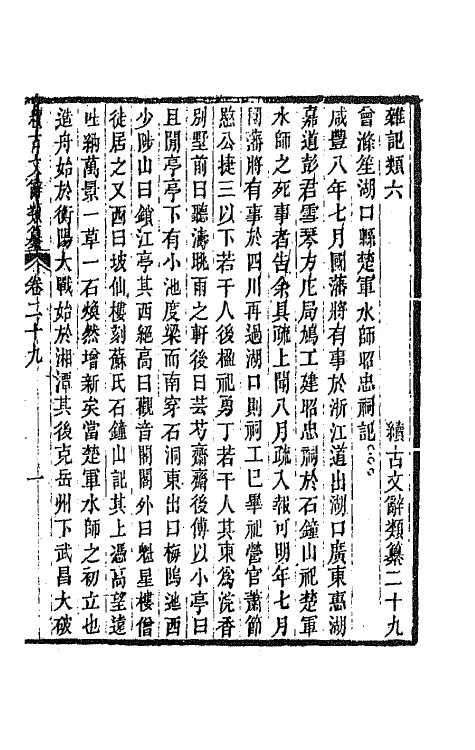 雜記類六 續古文辭類纂二十九
曾滌笙湖口縣楚軍水師昭忠祠記
咸豐八年七月國藩將有事於浙江道出湖口廣東惠湖
嘉道彭君雪琴方庀局鳩工建昭忠祠於石鐘山祀楚軍
水師之死事者告余具疏上聞八月疏入報可明年七月
國藩將有事於四川再過湖口則祠工已畢祀營官蕭節
愍公捷三以下若干人後楹祀勇丁若干人其東爲浣香
別墅前曰聽濤眺雨之軒後曰芸芍齋齋後傅以小亭曰
且閒亭亭下有小池度梁而南穿石洞東出曰梅隖池西
少陟山曰鎖江亭其西絕高曰觀音閣閣外曰魁星樓僧
徒居之又西曰坡仙樓刻蘇氏石鐘山記其上憑高望遠
吐納萬景一草一石煥然增新矣當楚軍水師之初立也
造舟始於衡陽大戰始於湘潭其後克岳州下武昌大破
續古文辭類纂 卷二十九 一